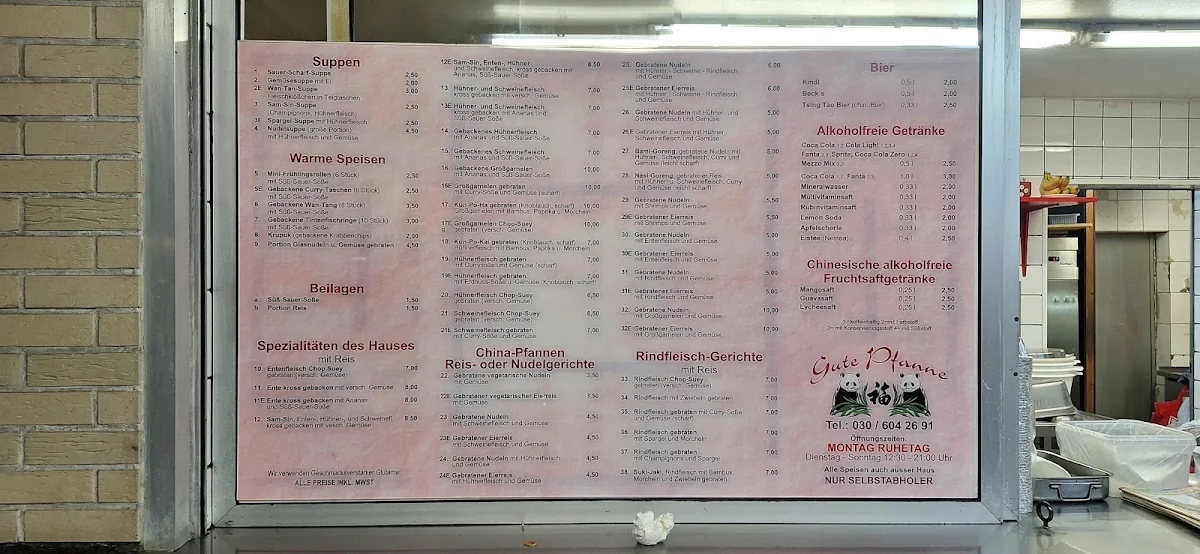 Suppen
1. Sauer-Scharf-Suppe 2,50
2. Gemüsesuppe mit Ei 2,00
2E Wan-Tan-Suppe 3,00
Fleischklößchen in Teigtaschen
3. Sam-Sin-Suppe 2,50
(Champignons, Hühnerfleisch)
Spargel-Suppe mit Hühnerfleisch 2,50
4. Nudelsuppe (große Portion) 4,50
mit Hühnerfleisch und Gemüse
Warme Speisen
5. Mini-Frühlingsrollen (6 Stück) 2,50
mit Süß-Sauer-Soße
5E Gebackene Curry-Taschen (6 Stück) 2,50
mit Süß-Sauer-Soße
6. Gebackene Wan-Tang (8 Stück) 3,50
mit Süß-Sauer-Soße
7. Gebackene Tintenfischringe (10 Stück) 3,00
mit Süß-Sauer-Soße
8. Krupuk (gebackene Krabbenchips) 2,00
9. Portion Glasnudeln u. Gemüse gebraten 4,50
Beilagen
a. Süß-Sauer-Soße 1,50
b. Portion Reis 1,50
Spezialitäten des Hauses
mit Reis
10. Entenfleisch Chop Suey 7,00
gebraten (versch. Gemüse)
11. Ente kross gebacken mit versch. Gemüse 8,00
11E Ente kross gebacken mit Ananas 8,00
und Süß-Sauer-Soße
12. Sam-Sin, Enten-, Hühner-, und Schweinefl. 8,50
kross gebacken mit vesch. Gemüse
Wir verwenden Geschmacksverstärker Glutamat.
ALLE PREISE INKL. MWST
12E Sam-Sin, Enten-, Hühner- 8,50
und Schweinefleisch, kross gebacken mit
Ananas, Süß-Sauer-Soße
13. Hühner- und Schweinefleisch, 7,00
kross gebacken mit versch. Gemüse
13E Hühner- und Schweinefleisch 7,00
kross gebacken mit Ananas und
Süß-Sauer-Soße
14. Gebackenes Hühnerfleisch 7,00
mit Ananas und Süß-Sauer-Soße
15. Gebackenes Schweinefleisch 7,00
mit Ananas und Süß-Sauer-Soße
16. Gebackene Großgarnelen 10,00
mit Ananas und Süß-Sauer-Soße
16E Großgarnelen gebraten 10,00
mit Curry-Soße und Gemüse (scharf)
17. Kun-Po-Ha gebraten (Knoblauch, scharf) 10,00
Großgarnelen mit Bambus, Paprika u. Morcheln
17E Großgarnelen Chop-Suey 10,00
gebraten (versch. Gemüse)
18. Kun-Po-Kai gebraten (Knoblauch, scharf) 7,00
Hühnerfleisch mit Bambus, Paprika u. Morcheln
19. Hühnerfleisch gebraten 7,00
mit Currysoße und Gemüse (scharf)
19E Hühnerfleisch gebraten 7,00
mit Erdnuss-Soße u. Gemüse (Knoblauch, scharf)
20. Hühnerfleisch Chop-Suey 6,50
gebraten (versch. Gemüse)
21. Schweinefleisch Chop-Suey 6,50
gebraten (versch. Gemüse)
21E Schweinefleisch gebraten 7,00
mit Curry-Soße und Gemüse
China-Pfannen
Reis- oder Nudelgerichte
22. Gebratene vegetarische Nudeln 3,50
mit Gemüse
22E Gebratener vegetarischer Eierreis 3,50
mit Gemüse
23. Gebratene Nudeln 4,50
mit Schweinefleisch und Gemüse
23E Gebratener Eierreis 4,50
mit Schweinefleisch und Gemüse
24. Gebratene Nudeln mit Hühnerfleisch 4,50
und Gemüse
24E Gebratener Eierreis 4,50
mit Hühnerfleisch und Gemüse
25. Gebratene Nudeln 6,00
mit Hühner-, Schweine-, Rindfleisch
und Gemüse
25E Gebratener Eierreis 6,00
mit Hühner-, Schweine-, Rindfleisch
und Gemüse
26. Gebratene Nudeln mit Hühner- 5,00
Schweinefleisch und Gemüse
26E Gebratener Eierreis mit Hühner, 5,00
Schweinefleisch und Gemüse
27. Bami-Goreng, gebratene Nudeln mit 5,00
Hühner-, Schweinefleisch, Curry und
Gemüse (leicht scharf)
28. Nasi-Goreng, gebratener Reis 5,00
mit Hühner- u. Schweinefleisch, Curry
und Gemüse (leicht scharf)
29. Gebratene Nudeln 5,50
mit Shrimps und Gemüse
29E Gebratener Eierreis 5,50
mit Shrimps und Gemüse
30. Gebratene Nudeln 5,00
mit Entenfleisch und Gemüse
30E Gebratener Eierreis 5,00
mit Entenfleisch und Gemüse
31. Gebratene Nudeln 5,00
mit Rindfleisch und Gemüse
31E Gebratener Eierreis 5,00
mit Rindfleisch und Gemüse
32. Gebratene Nudeln 10,00
mit Großgarnelen und Gemüse
32E Gebratener Eierreis 10,00
mit Großgarnelen und Gemüse
Rindfleisch-Gerichte
mit Reis
33. Rindfleisch Chop-Suey 7,00
gebraten (versch. Gemüse)
34. Rindfleisch mit Zwiebeln gebraten 7,00
35. Rindfleisch gebraten mit Curry-Soße 7,00
und Gemüse (scharf)
36. Rindfleisch gebraten 7,00
mit Spargel und Morcheln
37. Rindfleisch gebraten 7,00
mit Champignons und Spargel
38. Suki-Jaki, Rindfleisch mit Bambus, 7,00
Morcheln und Zwiebeln gebraten
Bier
Kindl 0,5 l 2,00
Beck's 0,5 l 2,00
Tsing Tao Bier (chin. Bier) 0,33 l 2,50
Alkoholfreie Getränke
Coca Cola 1,2 Cola Light 1,2,3,4
Fanta 2,3 Sprite, Coca Cola Zero 1,2,4
Mezzo Mix 2,3 0,5 l 2,50
Coca Cola 1,2, Fanta 2,3, 1,0 l 3,00
Mineralwasser 0,33 l 2,00
Multivitaminsaft 0,33 l 2,00
Rubinvitaminsaft 0,33 l 2,00
Lemon Soda 0,33 l 2,00
Apfelschorle 0,33 l 2,00
Eistee (Nestea) 0,4 l 2,50
Chinesische alkoholfreie
Fruchtsaftgetränke
Mangosaft 0,25 l 2,50
Guavasaft 0,25 l 2,50
Lycheesaft 0,25 l 2,50
1=koffeinhaltig 2=mit Farbstoff
3= mit Konservierungsstoff 4= mit Süßstoff
Gute Pfanne
福
Tel.: 030 / 604 26 91
Öffnungszeiten:
MONTAG RUHETAG
Dienstag - Sonntag 12:30 - 21:00 Uhr
Alle Speisen auch ausser Haus
NUR SELBSTABHOLER